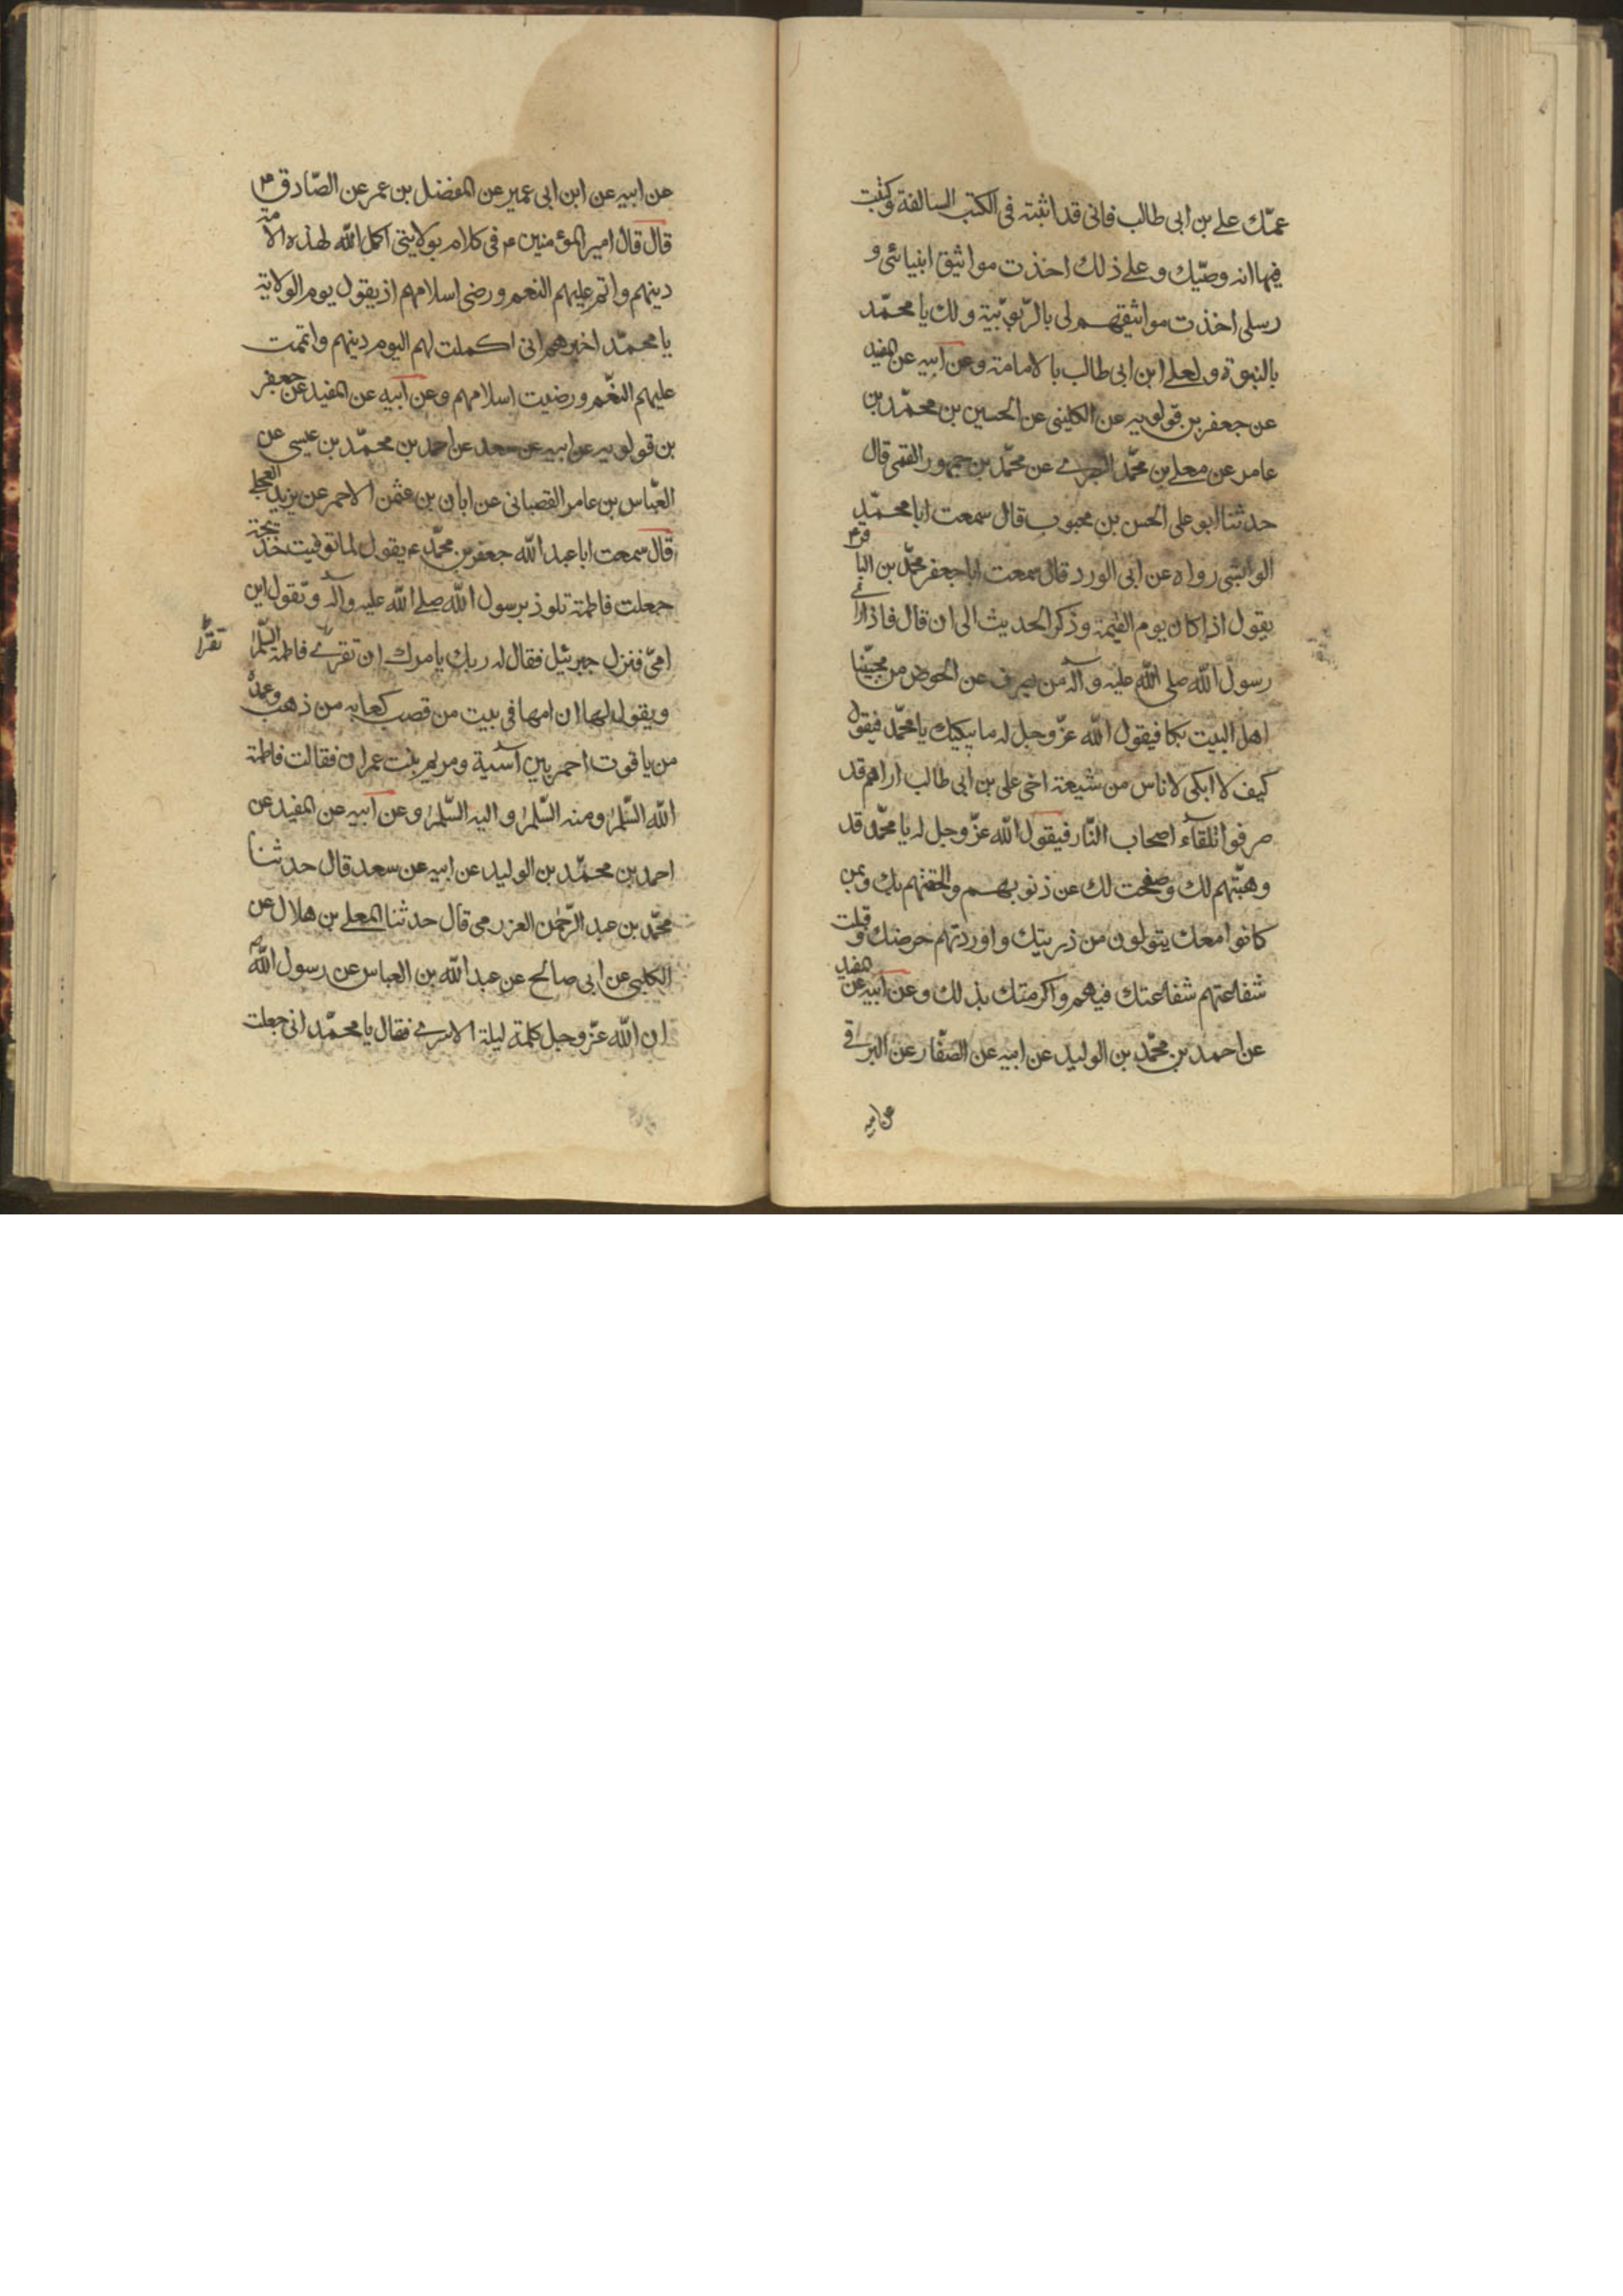 عمّك علي بن ابى طالب فانى قد اثبته فى الكتب السالفة وكتبت
فيها انه وصيّك و على ذلك اخذت مواثيق انبيائى و
رسلى اخذت مواثيقهم لى بالرّبوبيّة ولك يا محمّد
بالنبوة ولعلى ابن ابى طالب بالامامة وعن ابيه عن المفيد
عن جعفر بن قولويه عن الكلينى عن الحسين بن محمّد بن
عامر عن معلى بن محمّد البصرى عن محمّد بن جمهور القمى قال
حدثنا ابو على الحسن بن محبوب قال سمعت ابا محمّد
الوابشى رواه عن ابى الورد قال سمعت ابا جعفر محمّد بن الباقر ع
يقول اذا كان يوم القيمة وذكر الحديث الى ان قال فاذا راى
رسول الله صلى الله عليه وآله من يصرف عن الحوض من محبّينا
اهل البيت بكا فيقول الله عزّ وجل له ما يبكيك يا محمّد فيقول
كيف لا ابكى لاناس من شيعة اخى على بن ابى طالب اراهم قد
صرفوا تلقاء اصحاب النّار فيقول الله عزّ وجل له يا محمّد قد
وهبتهم لك وصفحت لك عن ذنوبهم والحقتهم بك وبمن
كانوا معك يتولون من ذريتك واوردتهم حوضك وقبلت
شفاعتهم شفاعتك فيهم واكرمتك بذلك وعن ابيه عن المفيد
عن احمد بن محمّد بن الوليد عن ابيه عن الصفّار عن البرقى
عن ابيه
عن ابيه عن ابن ابى عمير عن المفضل بن عمر عن الصّادق ع
قال قال امير المؤمنين ع فى كلام بولايتى اكمل الله لهذه الامة
دينهم واتم عليهم النعم ورضى اسلامهم اذ يقول يوم الولاية
يا محمّد اخبرهم انى اكملت لهم اليوم دينهم واتممت
عليهم النعّم ورضيت اسلامهم وعن ابيه عن المفيد عن جعفر
بن قولويه عن ابيه عن سعد عن احمد بن محمّد بن عيسى عن
العبّاس بن عامر القصبانى عن ابان بن عثمن الاحمر عن يزيد العجلى
قال سمعت ابا عبد الله جعفر بن محمّد ع يقول لما توفيت خديجة
جعلت فاطمة تلوذ برسول الله صلى الله عليه وآله وتقول اين
امىّ فنزل جبرئيل فقال له ربك يامرك ان تقرى فاطمة السّلم
تقرا
ويقول لها ان امها فى بيت من قصب كعابه من ذهب وعمده
من ياقوت احمر بين آسية ومريم بنت عمران فقالت فاطمة
الله السّلم ومنه السّلم واليه السّلم وعن ابيه عن المفيد عن
احمد بن محمّد بن الوليد عن ابيه عن سعد قال حدثنا
محمّد بن عبد الرّحمن العزرمى قال حدثنا المعلى بن هلال عن
الكلبى عن ابى صالح عن عبد الله بن العباس عن رسول الله
ان الله عزّ وجل كلمة ليلة الاسرى فقال يا محمّد انى جعلت